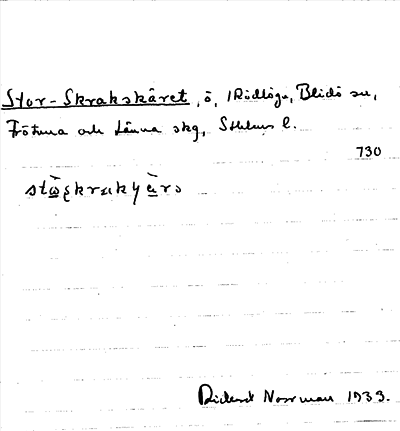 Stor-Skrakskäret, ö, i Rödlöga, Blidö sn,
Frötuna och Länna skg, Sthlms l.
730
Rickard Norrman 1933.